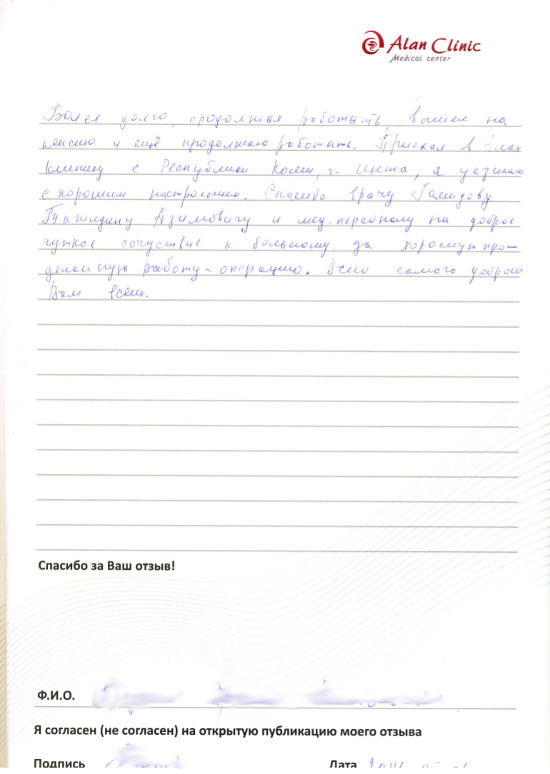 Alan Clinic
Medical center
Болел долго, продолжая работать, вышел на
пенсию и ещё продолжаю работать. Приехал в
клинику с Республики Коми, г. Инта, я уезжаю
с хорошим настроением. Спасибо врачу Гамидову
Азимовичу и мед. персоналу на доброе
чуткое сочуствие к больному, за хорошую про-
деланную работу - операцию. Всего самого доброго
Вам всем.
Спасибо за Ваш отзыв!
Ф.И.О.
Я согласен (не согласен) на открытую публикацию моего отзыва
Подпись Дата